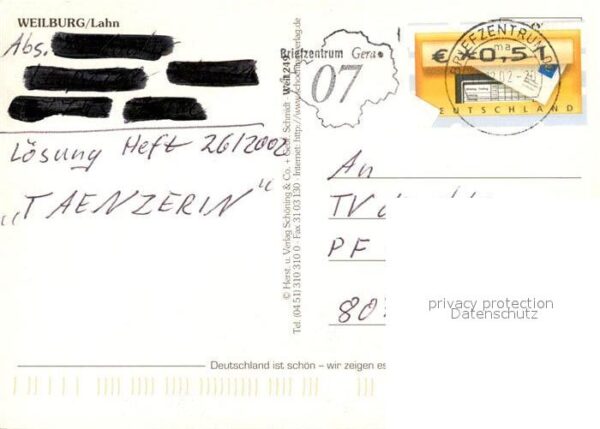 WEILBURG/Lahn
Abs.
Lösung Heft 26/2002
„TAENZERIN"
© Herst. u. Verlag Schöning & Co. + Gebr. Schmidt · Weil 249
Tel. (04 51) 310 310 0 · Fax 31 03 130 · Internet: http://www.schoening-verlag.de
Briefzentrum Gera
07
BRIEFZENTRUM
ma
02 - 21
€ *0,51
DEUTSCHLAND
An
TV
PF
80
privacy protection
Datenschutz
Deutschland ist schön – wir zeigen es